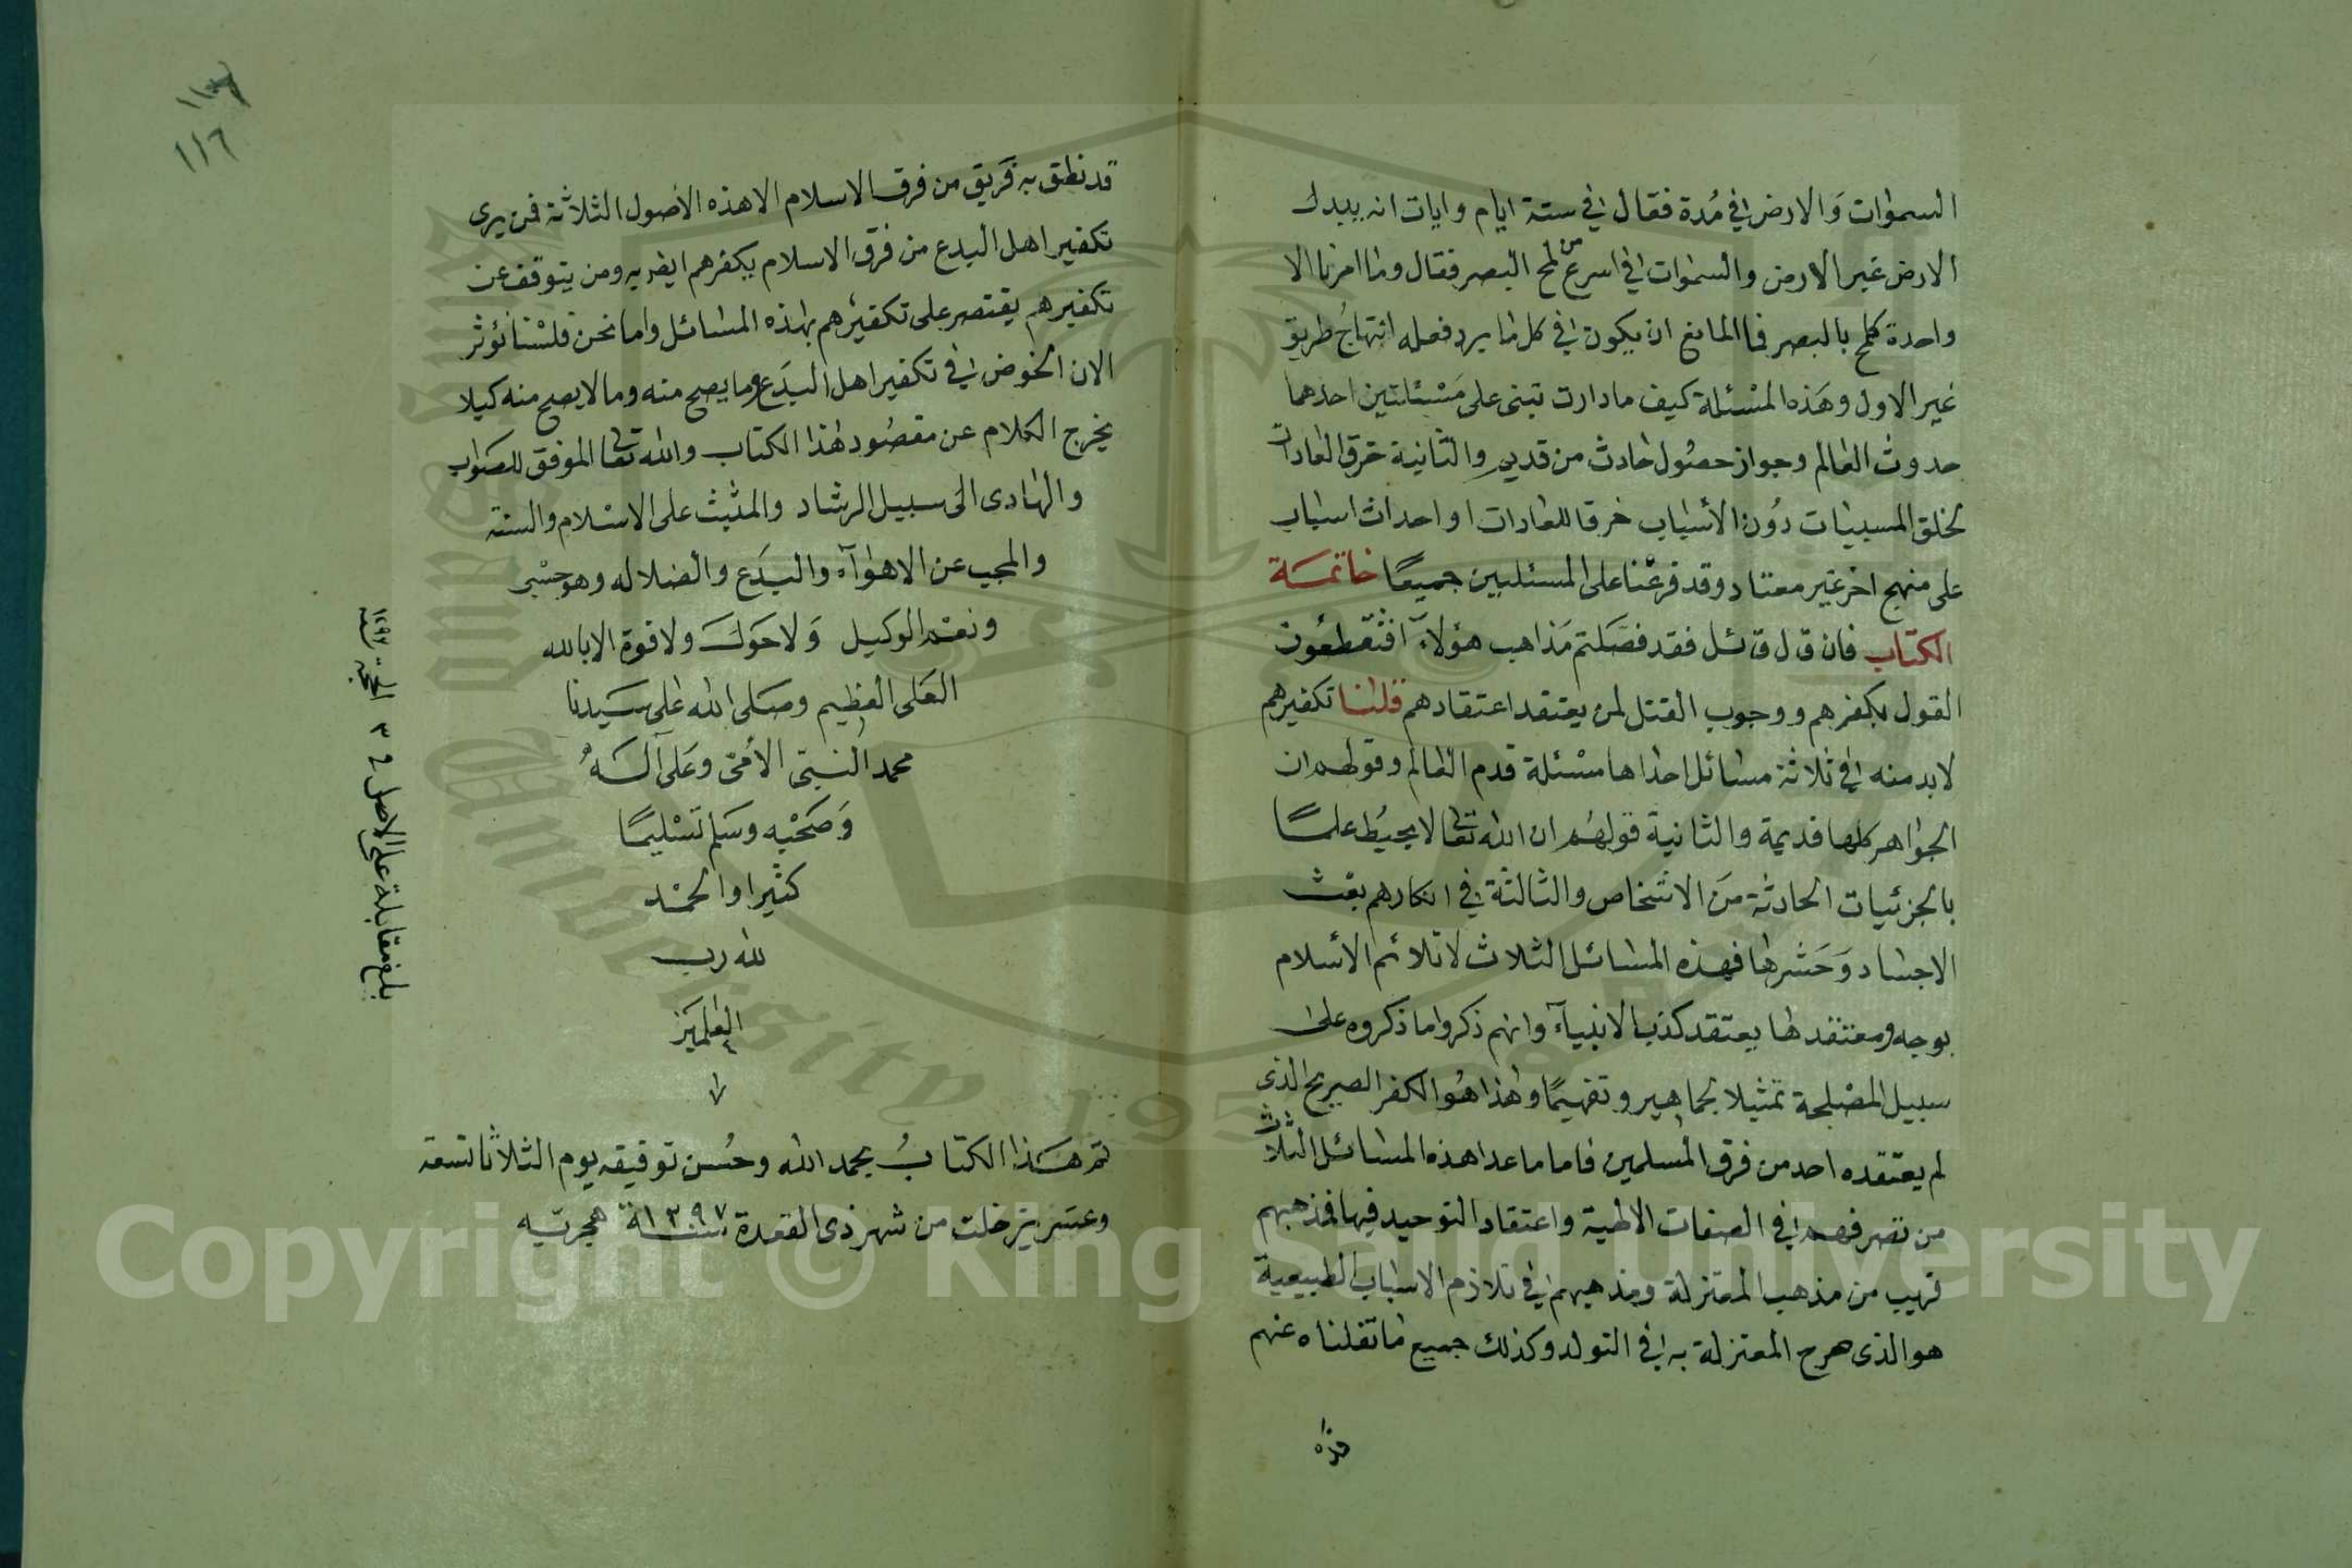 السموات والارض في مُدة فقال في ستة ايام وايات انه يبدل
الارض غير الارض والسموات في اسرع من لمح البصر فقال وما امرنا الا
واحدة كلمح بالبصر فما المانع ان يكون في كل ما يرد فعله انتهاج طريق
غير الاول وهذه المسئلة كيف ما دارت تبنى على مسئلتين احدهما
حدوث العالم وجواز حصول حادث من قديم والثانية خرق العادات
لخلق المسببات دون الأسباب خرقا للعادات او احداث اسباب
على منهج اخر غير معتاد وقد فرغنا على المسئلتين جميعًا خاتمة
الكتاب فان قال قائل فقد فصلتم مذاهب هؤلآء افتقطعون
القول بكفرهم ووجوب القتل لمن يعتقد اعتقادهم قلنا تكفيرهم
لابد منه في ثلاثة مسائل احداها مسئلة قدم العالم وقولهم ان
الجواهر كلها قديمة والثانية قولهم ان الله تعالى لا يحيط علمًا
بالجزئيات الحادثة من الاشخاص والثالثة في انكارهم بعث
الاجساد وحشرها فهذه المسائل الثلاث لا تلائم الأسلام
بوجه ومعتقدها يعتقد كذب الانبيآء وانهم ذكروا ما ذكروه على
سبيل المصلحة تمثيلا لجماهير وتفهيمًا وهذا هو الكفر الصريح الذي
لم يعتقده احد من فرق المسلمين فاما ما عدا هذه المسائل الثلاث
من تصرفهم في الصفات الالهية واعتقاد التوحيد فيها فمذهبهم
قريب من مذهب المعتزلة ومذهبهم في تلازم الاسباب الطبيعية
هو الذي صرح المعتزلة به في التولد وكذلك جميع ما نقلناه عنهم
١١٦
قد نطق به فريق من فرق الاسلام الا هذه الأصول الثلاثة فمن يرى
تكفير اهل البدع من فرق الاسلام يكفرهم ايضا به ومن يتوقف عن
تكفيرهم يقتصر على تكفيرهم بهذه المسائل واما نحن فلسنا نؤثر
الان الخوض في تكفير اهل البدع وما يصح منه وما لا يصح منه كيلا
يخرج الكلام عن مقصود هذا الكتاب والله تعالى الموفق للصواب
والهادى الى سبيل الرشاد والمثبت على الاسلام والسنة
والمجيب عن الاهوآء والبدع والضلاله وهو حسبى
ونعم الوكيل ولا حول ولا قوة الا بالله
العلى العظيم وصلى الله على سيدنا
محمد النبى الأمى وعلى آله
وصحبه وسلم تسليمًا
كثيرا والحمد
لله رب
العلمين
تم هذا الكتاب بحمد الله وحُسن توفيقه يوم الثلاثا تسعة
وعشرين خلت من شهر ذى القعدة سنة ١٢٩٧ هجريه
بلغ مقابلة على الاصل في ٣
Copyright © King Saud University